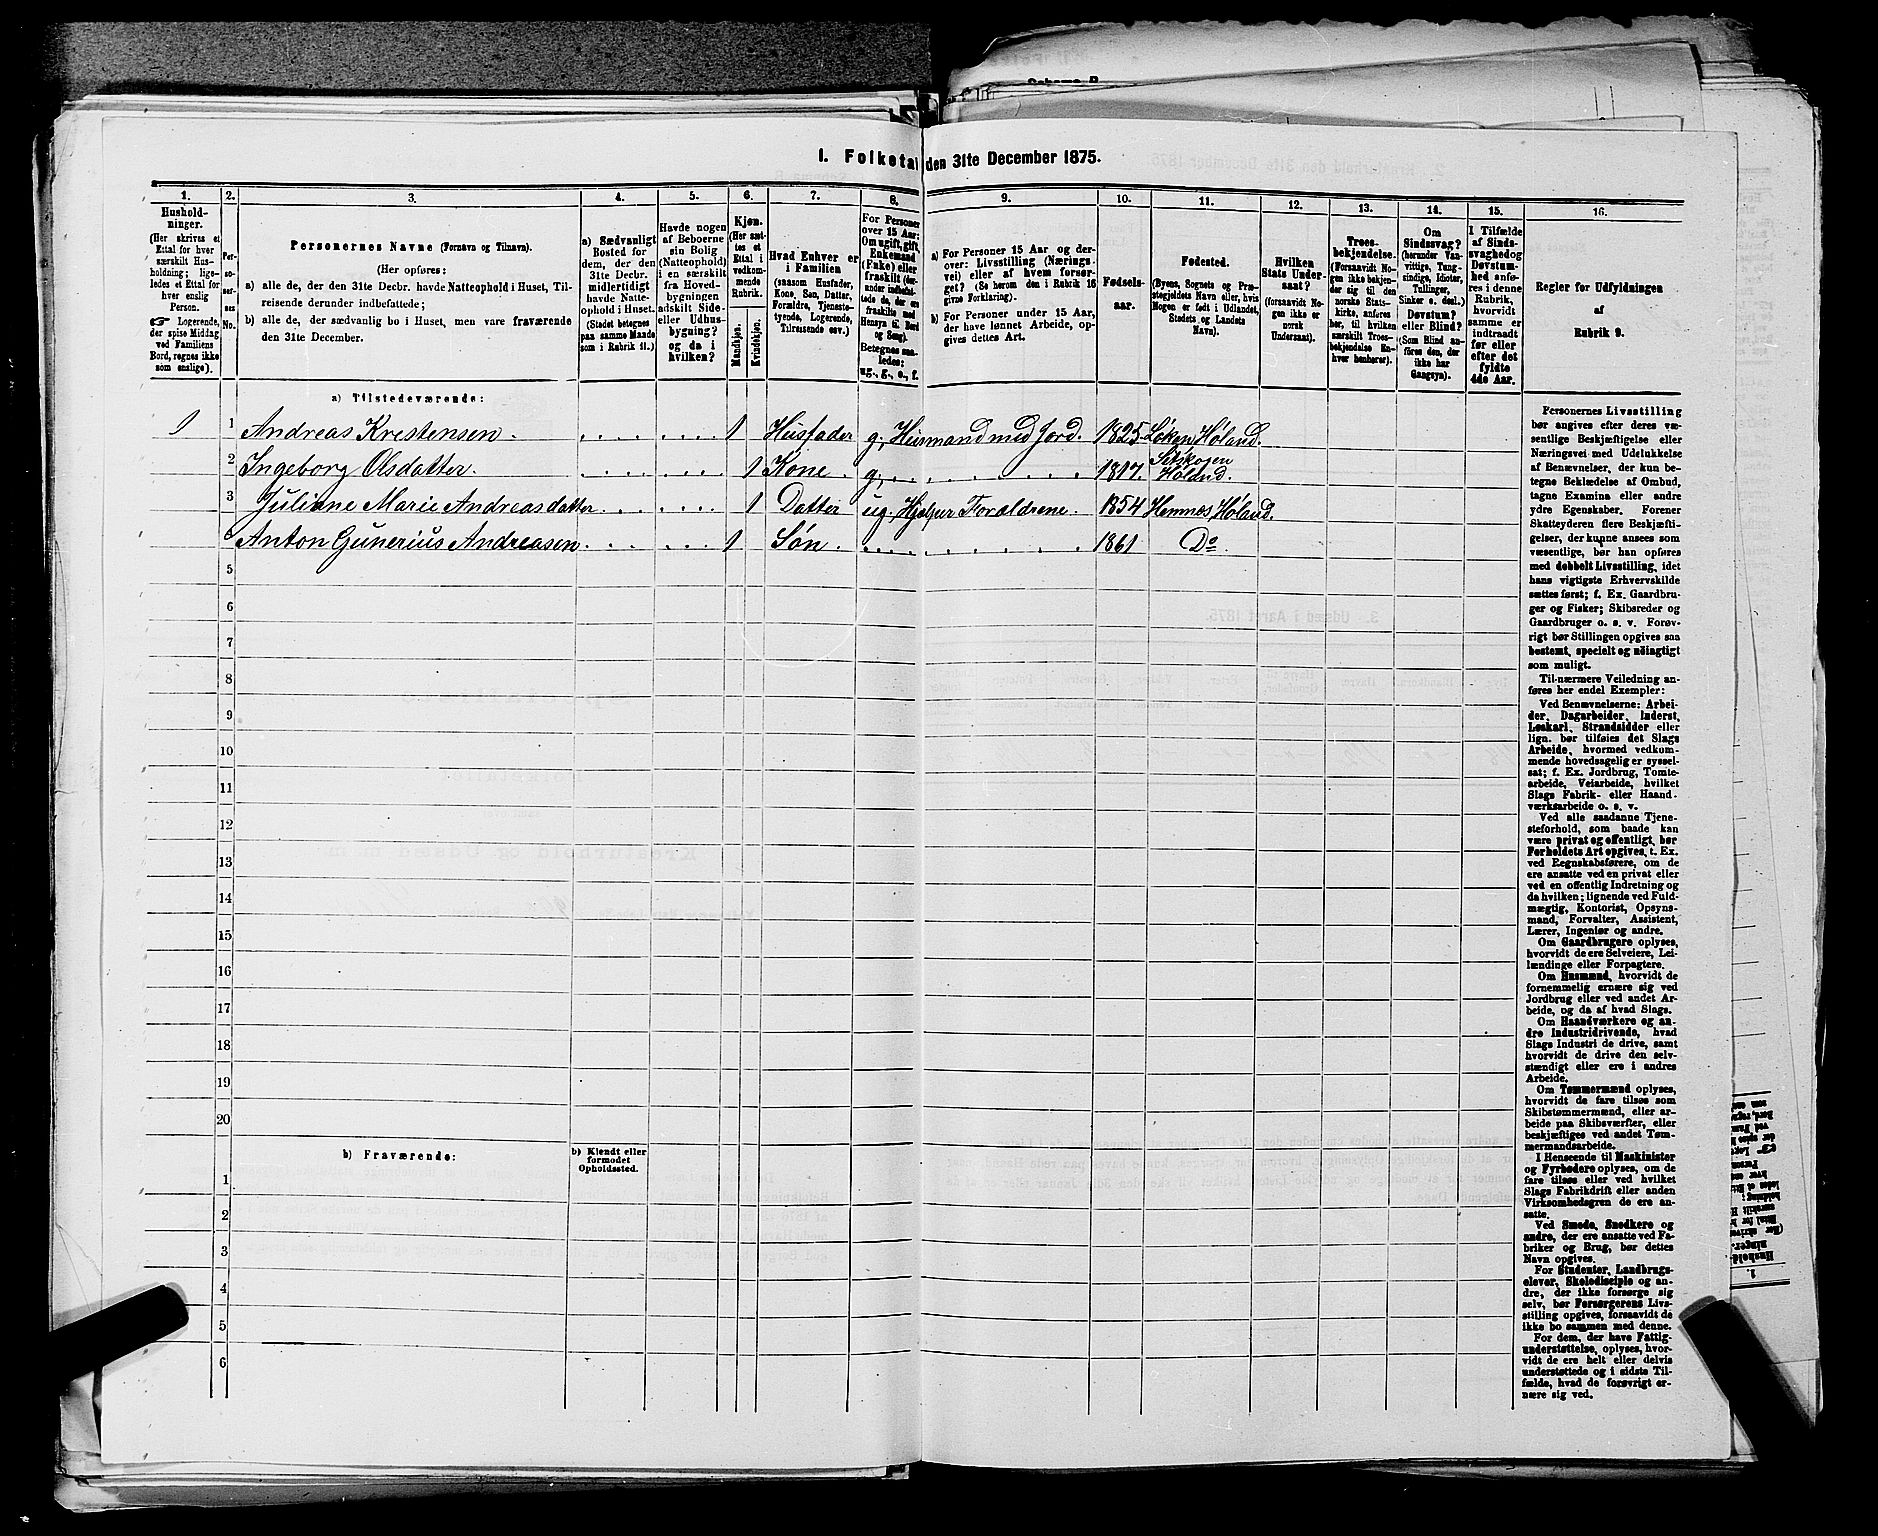 1. Folketal den 31te December 1875.
1. 2. 3. 4. 5. 6. 7. 8. 9. 10. 11. 12. 13. 14. 15. 16.
Husholdninger.
(Her skrives et
Ettal for hver
særskilt Husholdning;
ligeledes et Ettal for
hver enslig
Person.
☞ Logerende,
der spise Middag
ved Familiens
Bord, regnes ikke
som enslige).
Personernes No.
Personernes Navne (Fornavn og Tilnavn).
(Her opføres:
a) alle de, der den 31te Decbr. havde Natteophold i Huset, Tilreisende derunder indbefattede;
b) alle de, der sædvanlig bo i Huset, men vare fraværende den 31te December.
a) Sædvanligt
Bosted for
dem, der den
31te Decbr.
midlertidigt
havde Natteophold i Huset.
(Stedet betegnes
paa samme Maade
som i Rubrik 11.)
Havde nogen
af Beboerne
sin Bolig
(Natteophold)
i en særskilt
fra Hovedbygningen
adskilt Side-
eller Udhusbygning?
og da i
hvilken?
Kjøn.
(Her sættes et
Ettal i
vedkommende
Rubrik.
Mandkjøn.
Kvindekjøn.
Hvad Enhver er
i Familien
(saasom Husfader,
Kone, Søn, Datter,
Forældre, Tjenestetyende, Logerende,
Tilreisende osv.)
For Personer
over 15 Aar:
Om ugift, gift,
Enkemand
(Enke) eller
fraskilt
Betegnes saaledes:
ug., g., e., f.
a) For Personer 15 Aar og derover: Livsstilling (Næringsvei) eller af hvem forsørget? (Se herom den i Rubrik 16
givne Forklaring).
b) For Personer under 15 Aar,
der have lønnet Arbeide, opgives dettes Art.
Fødselsaar.
Fødested.
(Byens, Sognets og Præstegjeldets Navn eller, hvis
Nogen er født i Udlandet,
Stedets og Landets
Navn).
Hvilken
Stats Undersaat?
(forsaavidt Nogen ikke er
norsk
Undersaat).
Troesbekjendelse.
(Forsaavidt Nogen ikke bekjender sig til den
norske Statskirke, anføres
her, til hvilken
særskilt Troesbekjendelse Enhver henhører).
Om
Sindssvag?
(herunder Vanvittige, Tungsindige, Idioter,
Tullinger,
Sinker o. desl.)
Døvstum?
eller Blind?
(Som Blind anføres den, der
ikke har
Gangsyn).
I Tilfælde
af Sindssvaghed og
Døvstumhed anføres i denne
Rubrik,
hvorvidt
samme er
indtraadt
før eller
efter det
fyldte
4de Aar.
Regler for Udfyldningen
af
Rubrik 9.
a) Tilstedeværende:
1 1 Andreas Krestensen. 1 Husfader g, Husmand med Jord. 1825 Løken Høland.
2 Ingeborg Olsdatter. 1 Kone. g, 1817. Setskogen Høland.
3 Juliane Marie Andreasdatter 1 Datter ug. Hjelper Forældrene. 1854 Hemnæs, Høland.
Anton Gunerius Andreasen. 1 Søn. 1861 Do.
5
6
7
8
9
10
11
12
13
14
15
16
17
18
19
20
b) Fraværende:
b) Kjendt eller
formodet
Opholdssted.
1
2
3
4
5
6
Personernes Livsstilling
bør angives efter deres væsentlige Beskjæftigelse eller
Næringsvei med Udelukkelse
af Benævnelser, der kun betegne Beklædelse af Ombud,
tagne Examina eller andre
ydre Egenskaber. Forener
Skatteyderen flere Beskjæftigelser, der kunne ansees som
væsentlige, bør han opføres
med dobbelt Livsstilling, idet
hans vigtigste Erhvervskilde
sættes først; f. Ex. Gaardbruger og Fisker; Skibsreder og
Gaardbruger o. s. v. Forøvrigt bør Stillingen opgives saa
bestemt, specielt og nøiagtigt
som muligt.
Til nærmere Veiledning anføres her endel Exempler:
Ved Benævnelserne: Arbeider, Dagarbeider, Inderst,
Løskarl, Strandsidder eller
lign. bør tilføies det Slags
Arbeide, hvormed vedkommende hovedsagelig er sysselsat; f. Ex. Jordbrug, Tomtearbeide, Veiarbeide, hvilket
Slags Fabrik- eller Haandværksarbeide o. s. v.
Ved alle saadanne Tjenesteforhold, som baade kan
være privat og offentligt, bør
Forholdets Art opgives, t. Ex.
ved Regnskabsførere, om de
ere ansatte ved en privat eller
ved en offentlig Indretning og
da hvilken; lignende ved Fuldmægtig, Kontorist, Opsynsmand, Forvalter, Assistent,
Lærer, Ingeniør og andre.
Om Gaardbrugere oplyses,
hvorvidt de ere Selveiere, Leilændinge eller Forpagtere.
Om Husmænd, hvorvidt de
fornemmelig ernære sig ved
Jordbrug eller ved andet Arbeide, og da af hvad Slags.
Om Haandværkere og andre Industridrivende, hvad
Slags Industri de drive, samt
hvorvidt de drive den selvstændigt eller ere i andres
Arbeide.
Om Tømmermænd oplyses,
hvorvidt de fare tilsøs som
Skibstømmermænd, eller arbeide paa Skibsværfter, eller
beskjæftiges ved andet Tømmermandsarbeide.
I Henseende til Maskinister
og Fyrbødere oplyses, om de
fare tilsøs eller ved hvilket
Slags Fabrikdrift eller anden
Virksomhedsgren de ere ansatte.
Ved Smede, Snedkere og
andre, der ere ansatte ved Fabriker og Brug, bør dettes
Navn opgives.
For Studenter, Landbrugselever, Skoledisciple og andre, der ikke forsørge sig
selv, bør Forsørgerens Livsstilling opgives, forsaavidt de
ikke bo sammen med denne.
For dem, der have Fattigunderstøttelse, oplyses, hvorvidt de ere helt eller delvis
understøttede og i sidste Tilfælde, hvad de forøvrigt ernære sig ved.